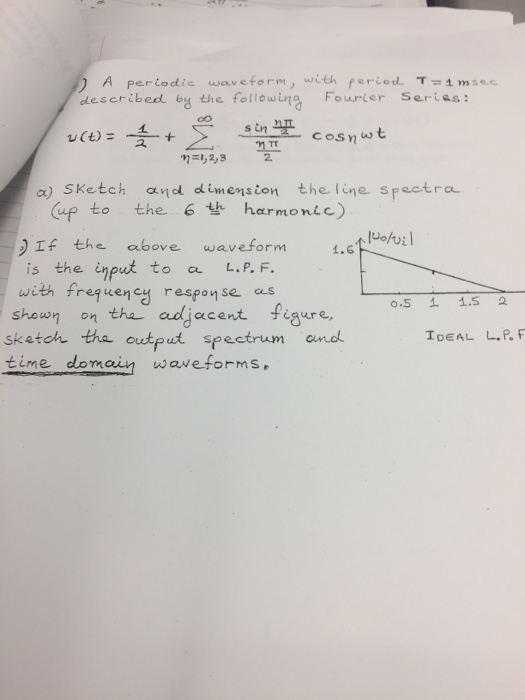 ) A periodic waveform, with period T = 1 msec
described by the following Fourier Series:
v(t) = 1/2 + ∑_{n=1,2,3}^{∞} (sin nπ/2)/(nπ/2) cos nwt
a) Sketch and dimension the line spectra
(up to the 6 th harmonic).
) If the above waveform
is the input to a L.P.F.
with frequency response as
shown on the adjacent figure,
sketch the output spectrum and
time domain waveforms.
|vo/vi|
1.6
0.5 1 1.5 2
IDEAL L.P.F